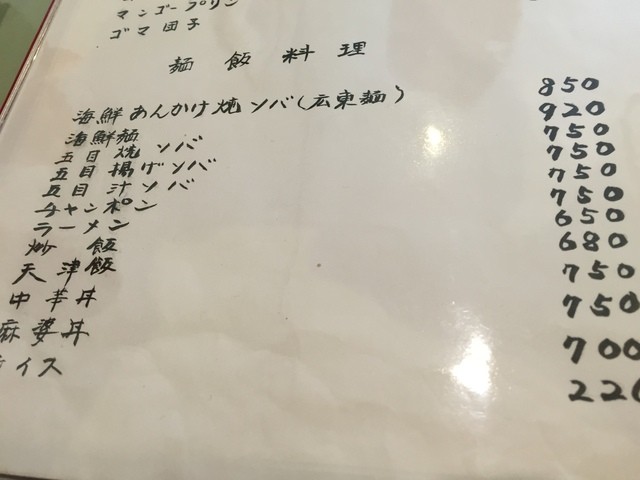 マンゴープリン
ゴマ団子
麺飯料理
海鮮あんかけ焼ソバ(広東麺) 850
海鮮麺 920
五目焼ソバ 750
五目揚げソバ 750
五目汁ソバ 750
チャンポン 750
ラーメン 650
炒飯 680
天津飯 750
中華丼 750
麻婆丼 700
ライス 220